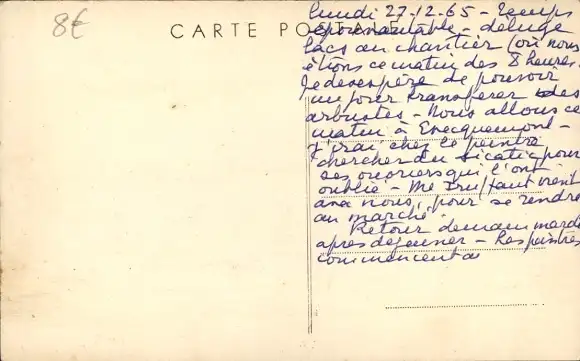 8€
CARTE POSTALE
lundi 27-12-65 - Temps
épouvantable - déluge
lacs au chantier (où nous
étions ce matin dès 8 heures.
Je désespère de pouvoir
un jour transférer des
arbustes - Nous allons ce
matin à Evecquemont -
J'irai chez le peintre
chercher du siccatif pour
ses ouvriers qui l'ont
oublié - Me vient
avec nous, pour se rendre
au marché.
Retour demain mardi
après déjeuner - Les peintres
commencent à